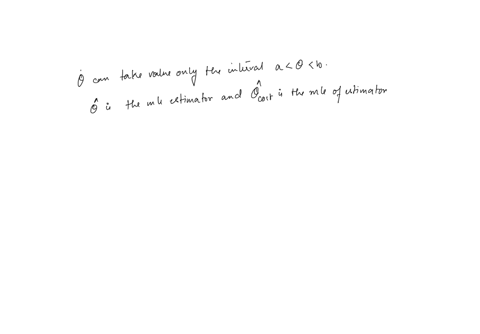 θ can take value only the interval a < θ < b.
θ̂ is the mle estimator and θ̂cost is the mle of estimator